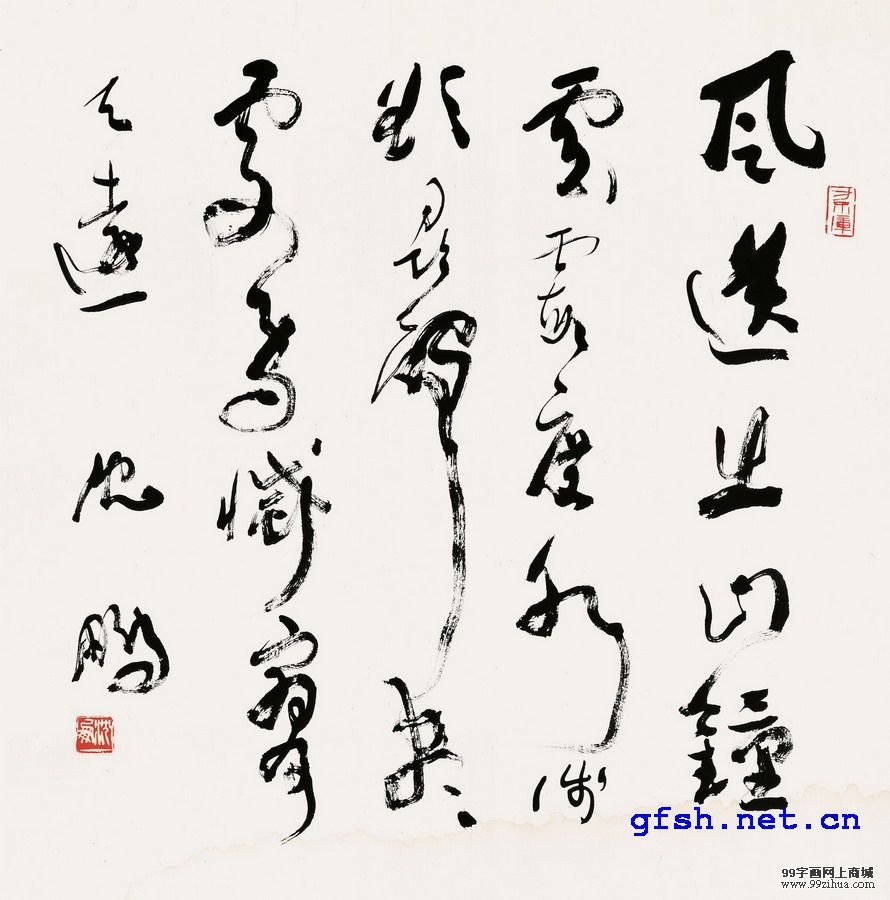 風送出山鐘
雲霞度水淺
欲尋聲盡
處鳥滅寥
天遠 沈鵬
gfsh.net.cn
99字画网上商城
www.99zihua.com